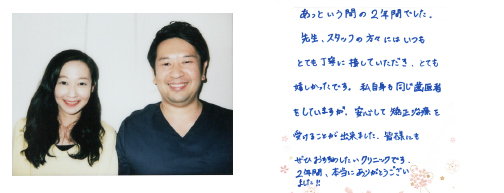 あっという間の2年間でした。
先生、スタッフの方々にはいつも
とても丁寧に接していただき、とても
嬉しかったです。私自身も同じ歯医者
をしていますが、安心して矯正治療を
受けることが出来ました。皆様にも
ぜひおすすめしたいクリニックです。
2年間、本当にありがとうござい
ました!!